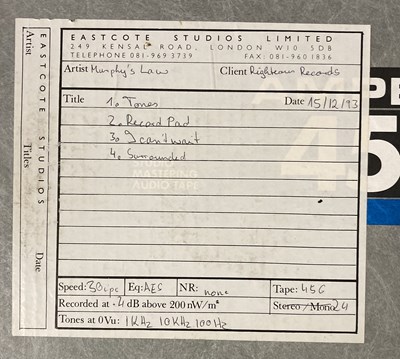 EASTCOTE STUDIOS LIMITED
249 KENSAL ROAD, LONDON W10 5DB
TELEPHONE 081-969 3739 FAX: 081-960 1836
Artist Murphy's Law Client Righteous Records
Title 1. Tones Date 15/12/93
2. Record Pad
3. I can't wait
4. Surrounded
MASTERING
AUDIO TAPE
Speed: 30ips Eq: AES NR: none Tape: 456
Recorded at +4 dB above 200 nW/m² Stereo/Mono 24
Tones at 0Vu: 1KHz 10KHz 100Hz
EASTCOTE STUDIOS
Artist Titles Date
PE
45